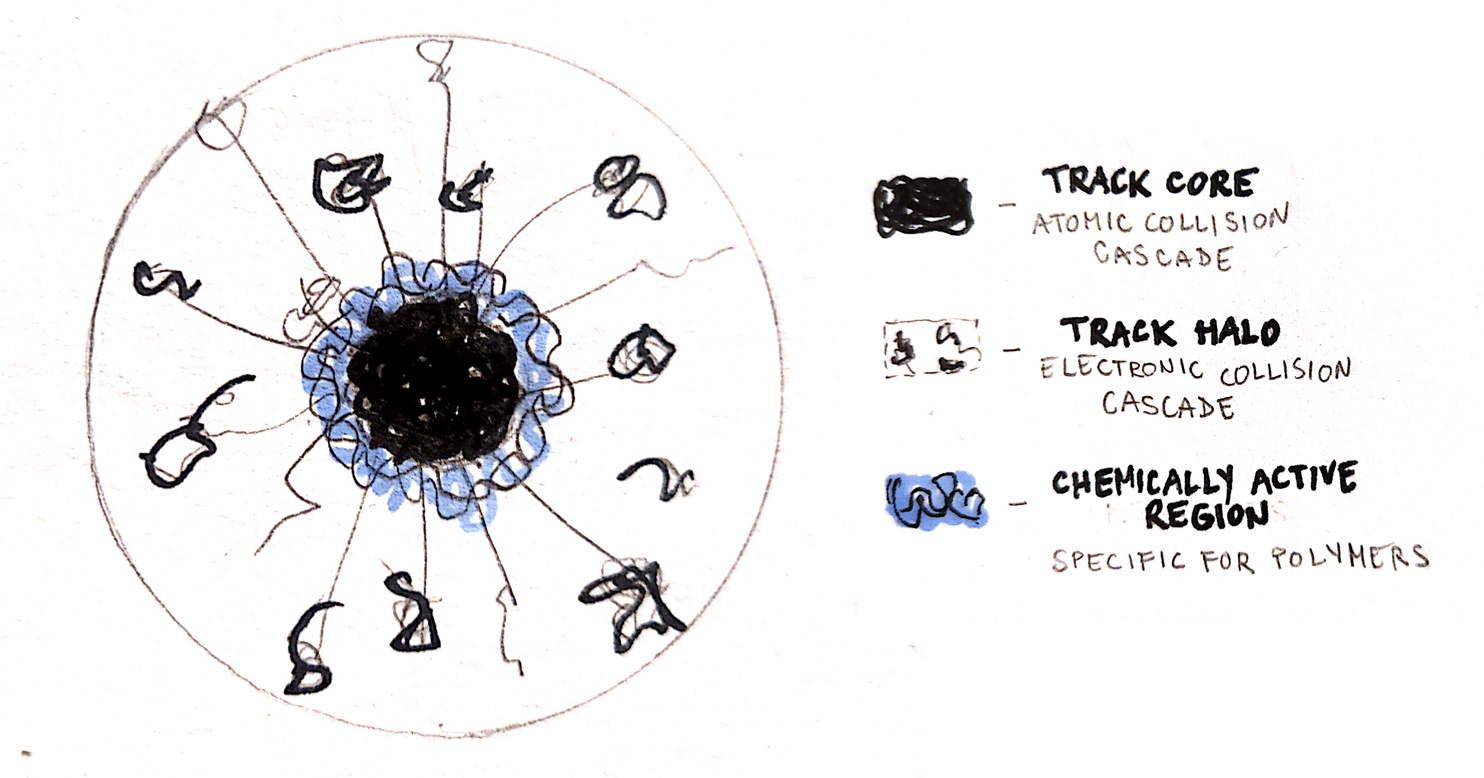 - TRACK CORE
ATOMIC COLLISION
CASCADE
- TRACK HALO
ELECTRONIC COLLISION
CASCADE
- CHEMICALLY ACTIVE
REGION
SPECIFIC FOR POLYMERS